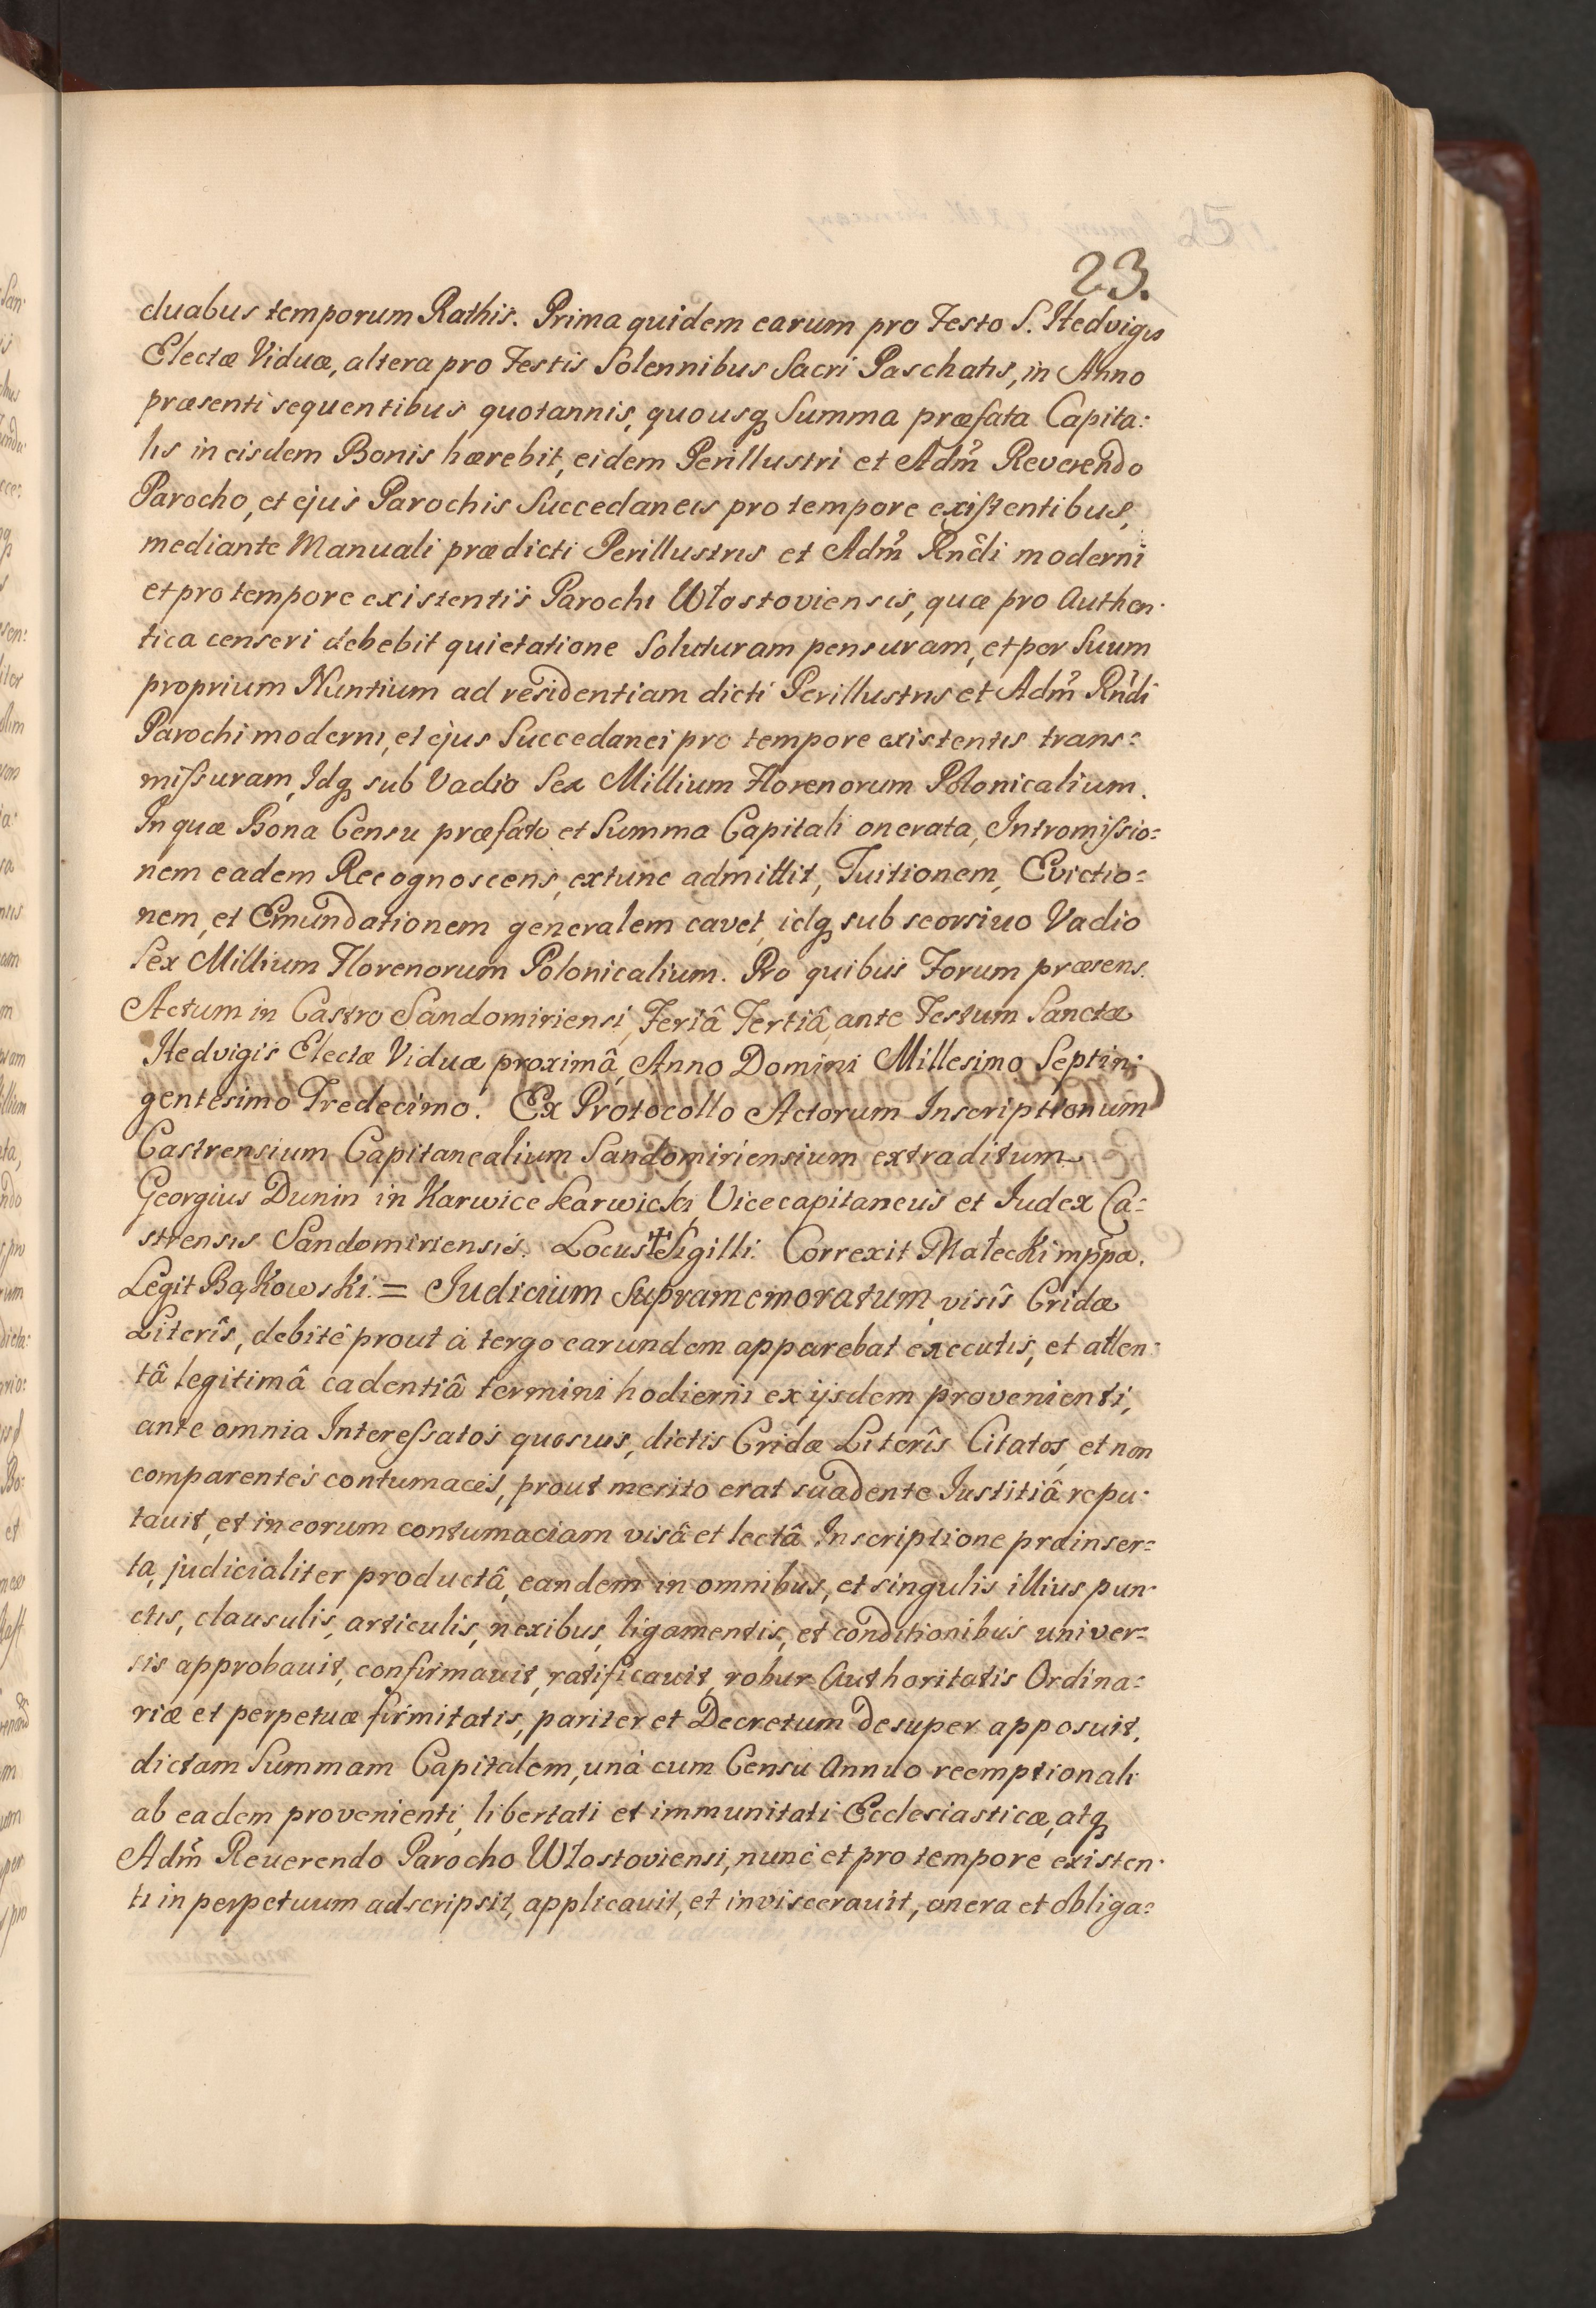 25
23.
duabus temporum Rathis. Prima quidem earum pro Festo S. Hedvigis
Electæ Viduæ, altera pro Festis Solennibus Sacri Paschatis, in Anno
præsenti sequentibus quotannis, quousq Summa præfata Capita:
lis in eisdem Bonis hærebit, eidem Perillustri et Adm̃ Reverendo
Parocho, et ejus Parochis Succedaneis pro tempore existentibus,
mediante Manuali prædicti Perillustris et Adm̃ Rñdi moderni
et pro tempore existentis Parochi Włostoviensis, quæ pro Authen:
tica censeri debebit quietatione Soluturam pensuram, et per Suum
proprium Nuntium ad residentiam dicti Perillustris et Adm̃ Rñdi
Parochi moderni, et ejus Succedanei pro tempore existentis trans=
missuram, Idq sub Vadio Sex Millium Florenorum Polonicalium.
In quæ Bona Censu præfato et Summa Capitali onerata, Intromissio=
nem eadem Recognoscens, extunc admittit, Tuitionem, Evictio=
nem, et Emundationem generalem cavet, idq sub seorsivo Vadio
Sex Millium Florenorum Polonicalium. Pro quibus Forum præsens.
Actum in Castro Sandomiriensi, Feriâ Tertiâ, ante Festum Sanctæ
Hedvigis Electæ Viduæ proximâ, Anno Domini Millesimo Septin:
gentesimo Tredecimo. Ex Protocollo Actorum Inscriptionum
Castrensium Capitanealium Sandomiriensium extraditum
Georgius Dunin in Karwice Karwicki, Vicecapitaneus et Iudex Ca=
strensis Sandomiriensis. Locus ✝ Sigilli. Correxit Małecki mppa.
Legit Bąkowski. = Iudicium Supramemoratum, visîs Cridæ
Literîs, debitè prout à tergo earundem apparebat executis, et atten:
tâ legitimâ cadentiâ termini hodierni ex ijsdem provenienti,
ante omnia Interessatos quosvis, dictis Cridæ Literîs Citatos, et non
comparentes contumaces, prout merito erat suadente Iustitiâ repu:
tauit, et in eorum contumaciam visâ et lectâ Inscriptione præinser=
ta, judicialiter productâ, eandem in omnibus, et singulis illius pun:
ctis, clausulis, articulis, nexibus, ligamentis, et conditionibus univer=
sis approbauit, confirmauit, ratificauit, robur Authoritatis Ordina=
riæ et perpetuæ firmitatis, pariter et Decretum desuper apposuit,
dictam Summam Capitalem, unà cum Censu Annuo reemptionali
ab eadem provenienti, libertati et immunitati Ecclesiasticæ, atq
Adm̃ Reuerendo Parocho Włostoviensi, nunc et pro tempore existen:
ti in perpetuum adscripsit, applicauit, et inviscerauit, onera et obliga=